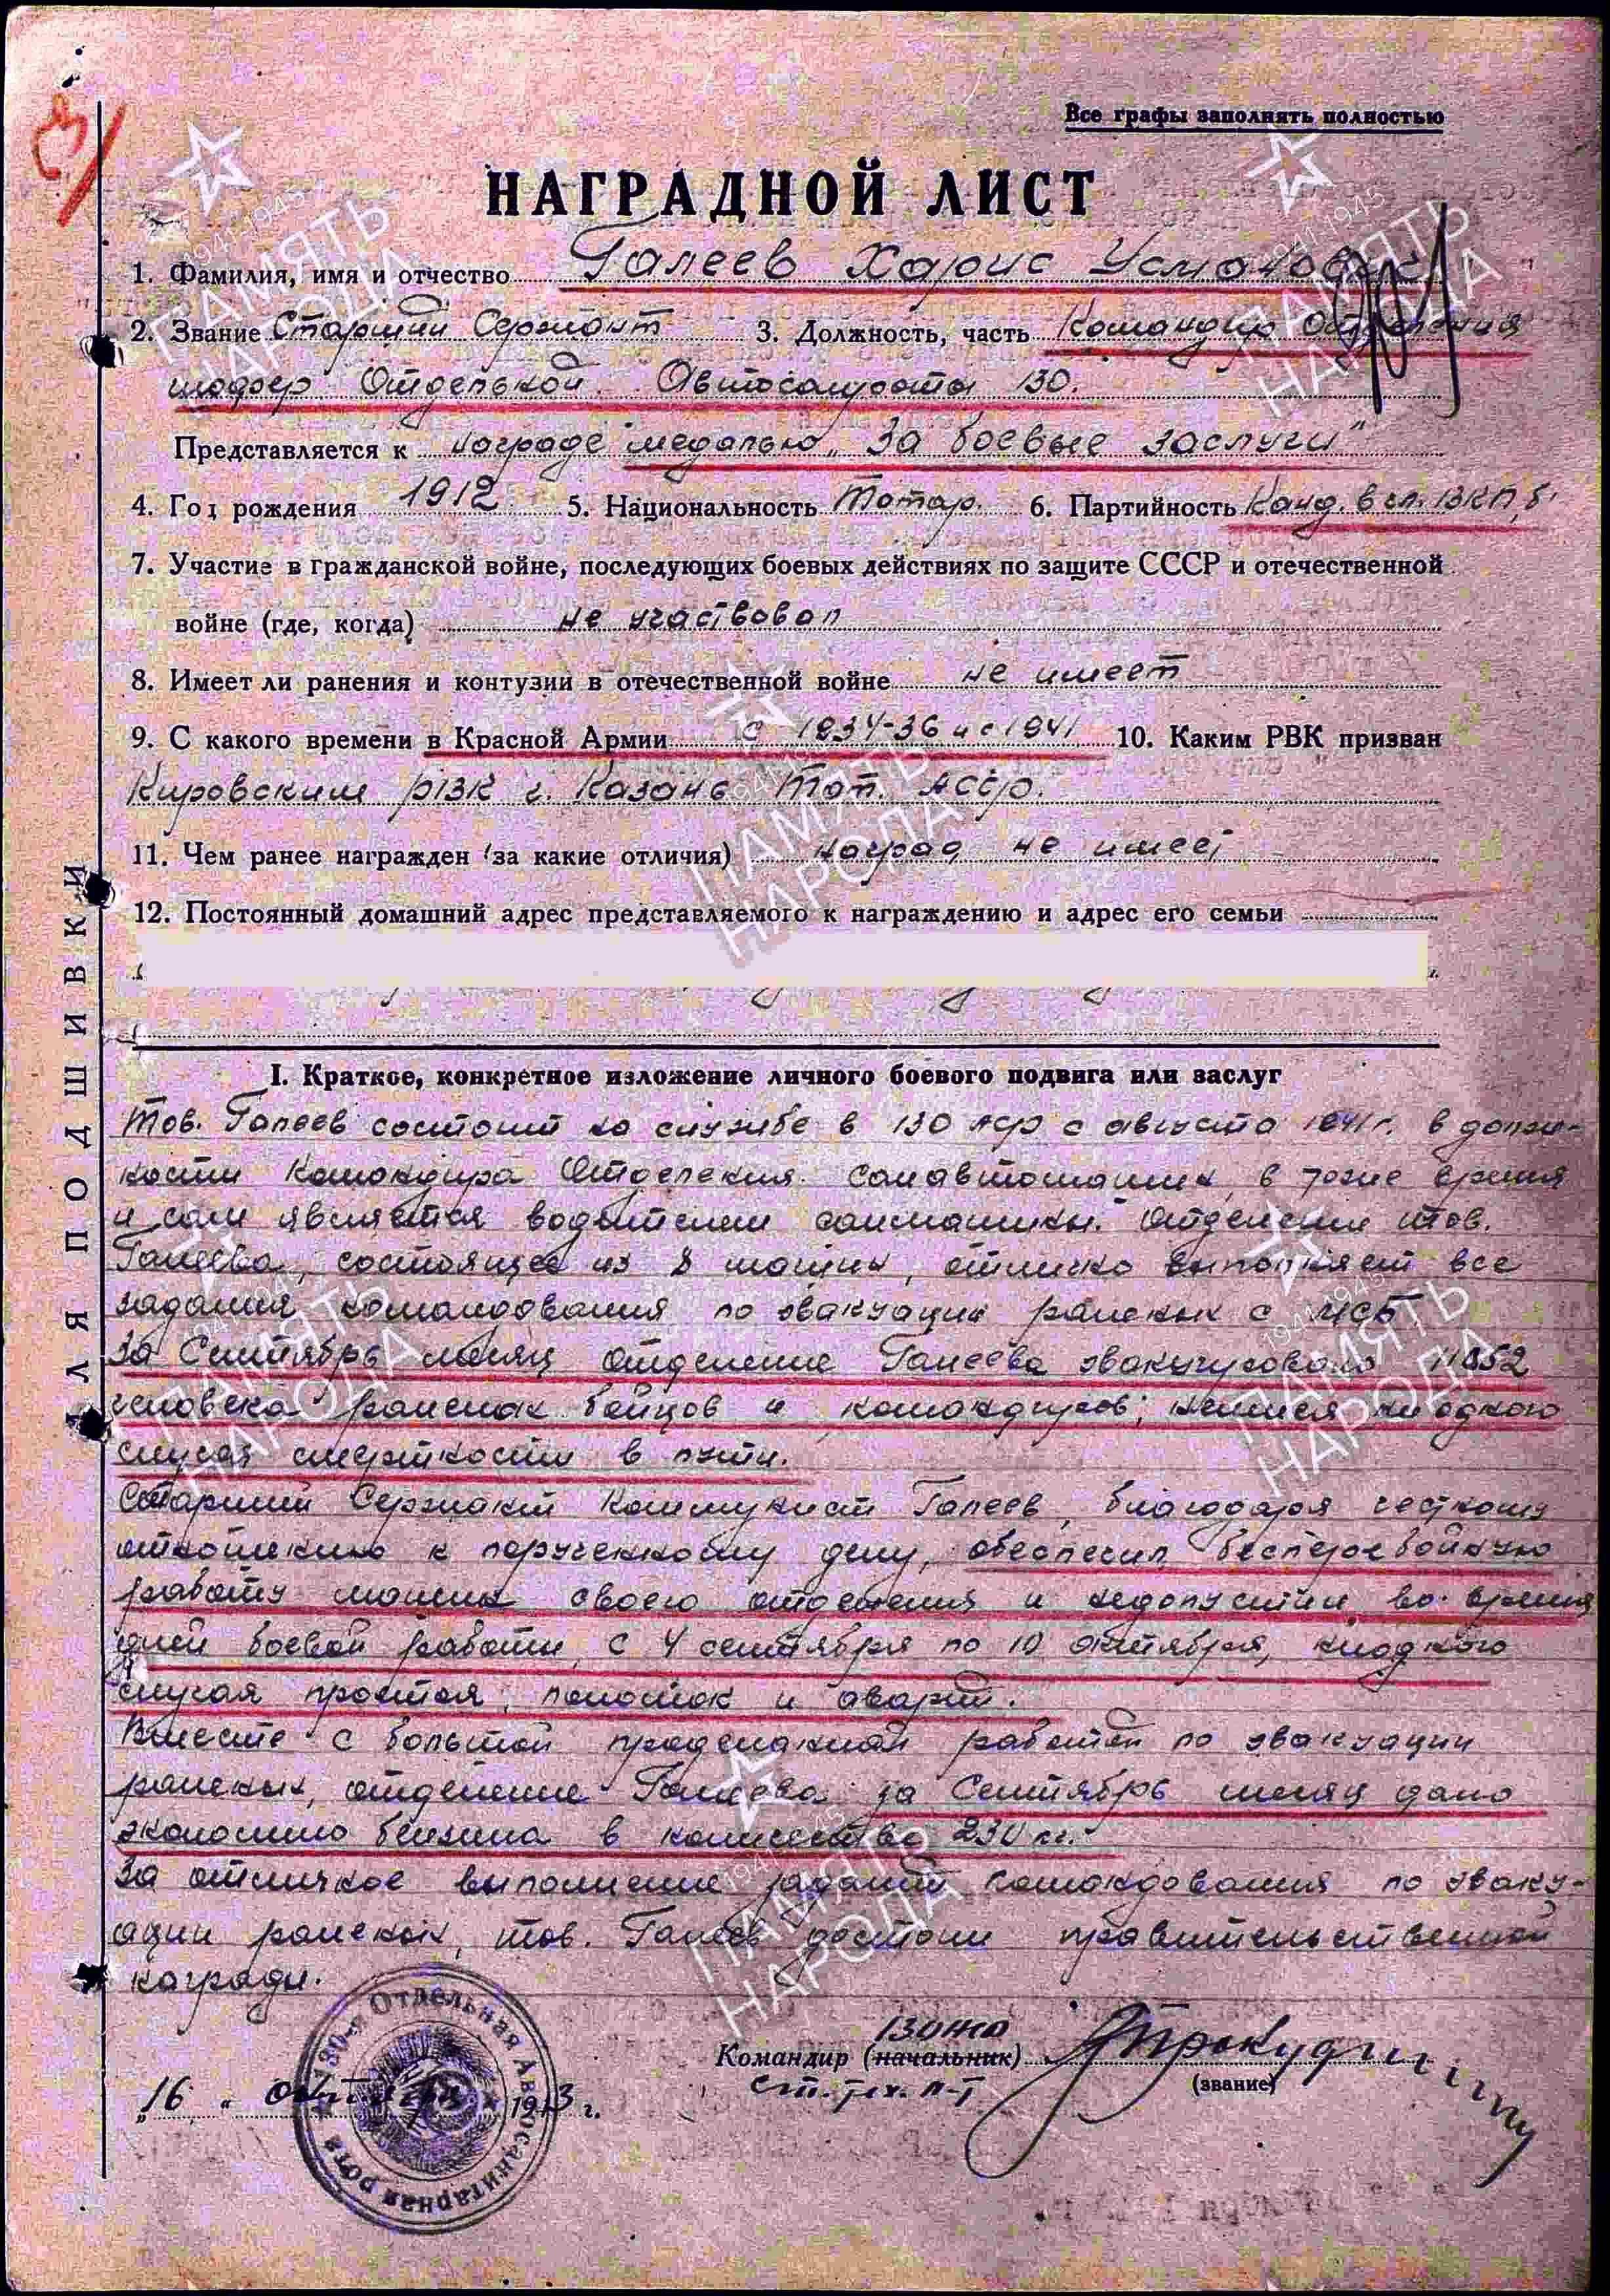 Все графы заполнять полностью
НАГРАДНОЙ ЛИСТ
1. Фамилия, имя и отчество Галеев Харис Усманович
2. Звание Старший Сержант 3. Должность, часть Командир Отделения
шофер Отдельной Автосанроты 130.
Представляется к награде медалью „За боевые заслуги"
4. Год рождения 1912 5. Национальность Татар. 6. Партийность Канд. в чл. ВКП,б
7. Участие в гражданской войне, последующих боевых действиях по защите СССР и отечественной
войне (где, когда) не участвовал
8. Имеет ли ранения и контузии в отечественной войне не имеет
9. С какого времени в Красной Армии с 1934-36 и с 1941 10. Каким РВК призван
Кировским РВК г. Казань Тат. АССР.
11. Чем ранее награжден (за какие отличия) наград не имеет
12. Постоянный домашний адрес представляемого к награждению и адрес его семьи
I. Краткое, конкретное изложение личного боевого подвига или заслуг
Тов. Галеев состоит на службе в 130 АСР с августа 1941 г. в долж-
ности Командира Отделения санавтомашин, в тоже время
и сам является водителем санмашины. Отделение тов.
Галеева, состоящее из 8 машин, отлично выполняет все
задания командования по эвакуации раненых с МСБ
За Сентябрь месяц отделение Галеева эвакуировало
человека раненых бойцов и командиров, неимея ниодного
случая смертности в пути.
Старший Сержант Коммунист Галеев, благодаря честному
отношению к порученному делу, обеспечил бесперебойную
работу машин своего отделения и недопустил во время
дней боевой работы, с 4 сентября по 10 октября, ниодного
случая простоя, поломок и аварий.
Вместе с большой проделанной работой по эвакуации
раненых, отделение Галеева за Сентябрь месяц дало
экономию бензина в количестве 230 кг.
За отличное выполнение заданий командования по эваку-
ации раненых, тов. Галеев достоин правительственной
награды.
Командир (начальник) 130 АСР
ст. тех. л-т
(звание)
„16" октября 1943 г.
130-я Отдельная Автосанитарная рота
ДЛЯ ПОДШИВКИ
1941-1945
ПАМЯТЬ
НАРОДА